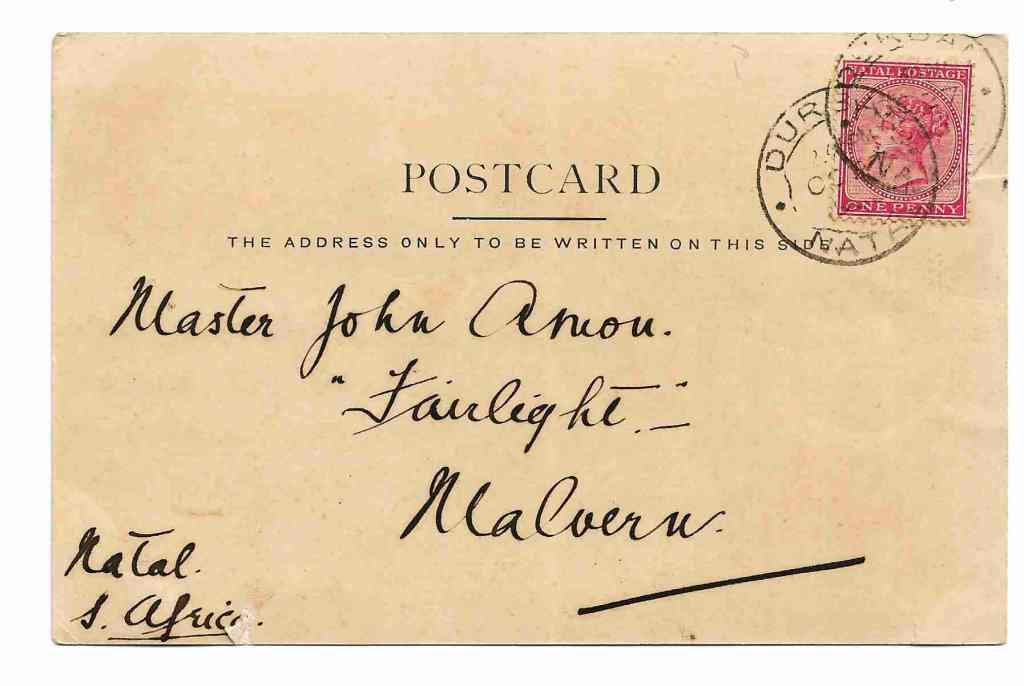 NATAL POSTAGE
ONE PENNY
DURBAN
NATAL
POSTCARD
THE ADDRESS ONLY TO BE WRITTEN ON THIS SIDE.
Master John Amon.
"Fairlight."
Malvern.
Natal.
S. Africa.